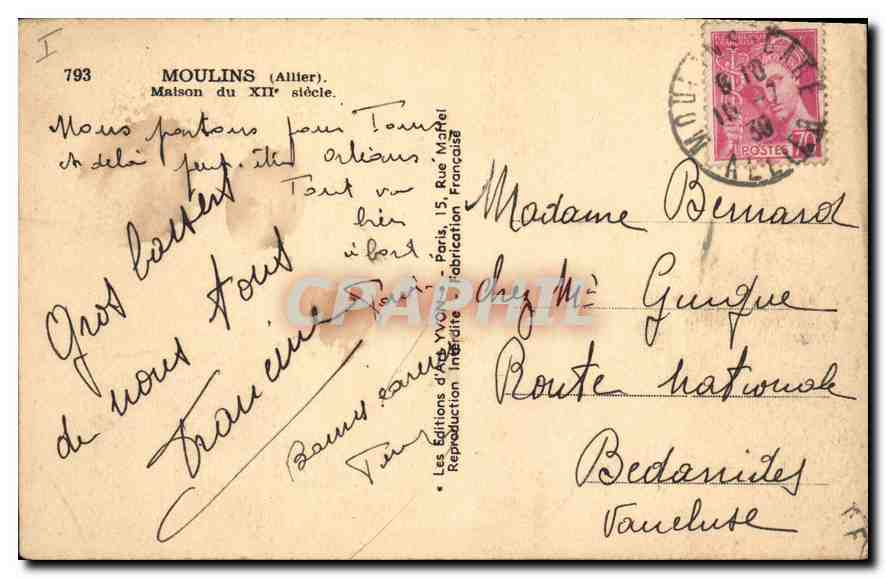 I
793 MOULINS (Allier).
Maison du XIIe siècle.
Nous partons pour Tours
et delà peut-être Orléans.
Tout va
bien
à bord
Gros baisers
de nous tous
Francine
Bonnes
Madame Bernard
chez Mr
Route Nationale
Bedarrides
Vaucluse
* Les Editions d'Art YVON - Paris, 15, Rue Martel
Reproduction Interdite - Fabrication Française
MOULINS
ALLIER
POSTES
CPAPHIL